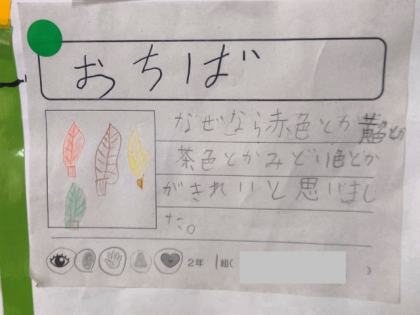 おちば
なぜなら赤色とか黄色とか
茶色とかみどり色とか
がきれいと思いまし
た。
2年 1組(
)